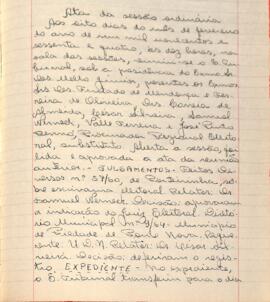 Ata da sessão ordinária
Aos oito dias do mês de fevereiro
do ano de mil novecentos e
sessenta e quatro, às dez horas, na
sala das sessões, reuniu-se o Tri-
bunal, sob a presidência do Exmo. Sr.
Des. Mello Júnior, presentes os Exmos.
Srs. Des. Furtado de Mendonça e Fer-
reira de Oliveira, Drs. Correia de
Almeida, Cesar Silveira, Samuel
Werneck, Valle Ferreira e José Pinto
Renno, Procurador Regional Eleito-
ral, substituto. Aberta a sessão, foi
lida e aprovada a ata da reunião
anterior. - JULGAMENTOS. Feitos Di-
versos nº 57/60, de Porteirinha, so-
bre escrivania eleitoral. Relator: Dr.
Samuel Werneck. Decisão: aprovaram
a indicação do Juiz Eleitoral. Diretó-
rio Municipal nº /64. Município
de Piedade de Ponte Nova. Reque-
rente: U.D.N. Relator: Dr. Cesar Sil-
veira. Decisão: deferiram o regis-
tro. EXPEDIENTE - No expediente,
o E. Tribunal transferiu para o dia